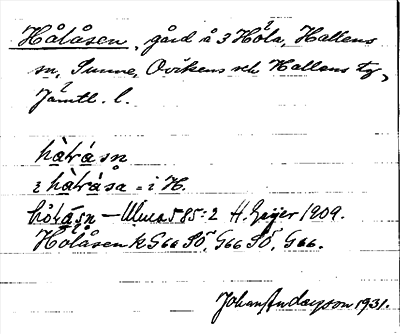 Hålåsen, gård å 3 Höla, Hallens
sn, Sunne, Ovikens och Hallens tg,
Jämtl. l.
hàtrá sn
i hàtrása = i H.
hötrásn – Ulma 585:2 H. Geijer 1909.
Hölåsen k G66 SÖ, G66 SÖ, G66.
Johan Anderson 1931.